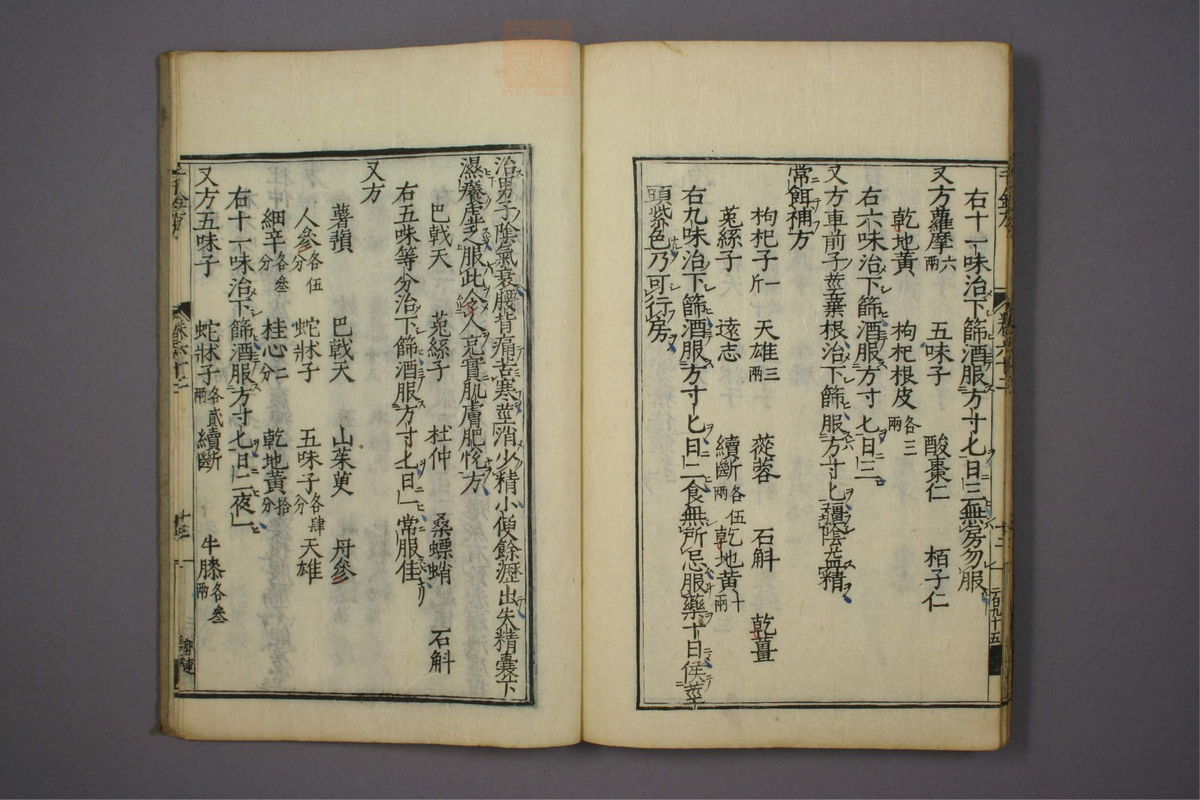 右十一味治下篩酒服方寸匕日三無房勿服
又方蘿摩六兩 五味子 酸棗仁 栢子仁
乾地黃 枸杞根皮各三兩
右六味治下篩酒服方寸匕日三
又方車前子莖葉根治下篩服方寸匕彊陰益精
常餌補方
枸杞子一斤 天雄三兩 蓯蓉 石斛 乾薑
菟絲子 遠志 續斷各伍兩 乾地黃十兩
右九味治下篩酒服方寸匕日二食無所忌服藥十日候莖
頭紫色乃可行房
治男子陰氣衰腰背痛苦寒莖消少精小便餘瀝出失精囊下
濕癢虛乏服此令人充實肌膚肥悅方
巴戟天 菟絲子 杜仲 桑螵蛸 石斛
右五味等分治下篩酒服方寸匕日一常服佳
又方
薯蕷 巴戟天 山茱萸 丹參
人參各伍分 蛇牀子 五味子各肆分 天雄
細辛各叁分 桂心二分 乾地黃拾分
右十一味治下篩酒服方寸匕日二夜一
又方五味子 蛇牀子各貳兩 續斷 牛膝各叁兩